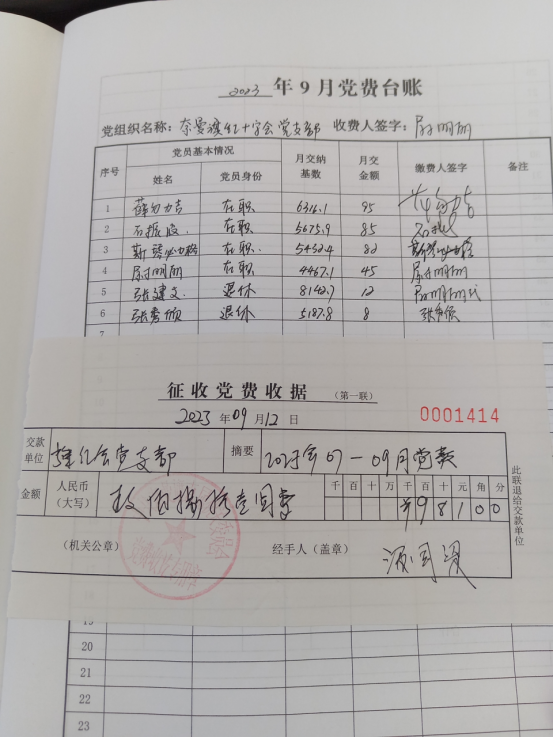 2023 年9月党费台账
党组织名称：奈曼旗红十字会党支部 收费人签字：尉明丽
序号 党员基本情况 月交纳基数 月交金额 缴费人签字 备注
姓名 党员身份
1 在职 6316.1 95
2 石振波 在职 5675.9 85
3 斯琴 在职 5452.4 82
4 尉明丽 在职 4467.1 45 尉明丽
5 张建文 退休 8142.7 12 尉明丽代
6 退休 5187.8 8
7
征收党费收据 （第一联）
2023 年 09 月 12 日 0001414
交款单位 红会党支部 摘要 2023年07-09月党费
金额 人民币（大写） 玖佰捌拾壹圆零 千 百 十 万 千 百 十 元 角 分
¥ 9 8 1 0 0
（机关公章） 经手人（盖章）
此联退给交款单位
19
20
21
22
23